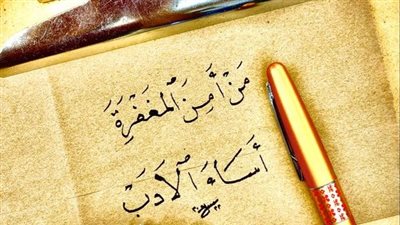 مَنْ أَمِنَ الْمَغْفِرَةَ
أَسَاءَ الْأَدَبَ